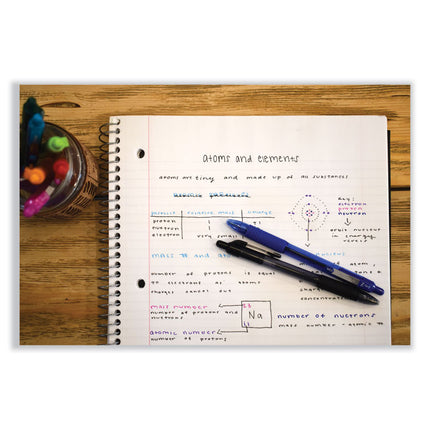 atoms and elements
atoms are tiny and made up of all substances
particle relative mass charge
proton 1
neutron 1
electron very small
key:
electron
proton
neutron
orbit nucleus
in energy
levels
mass # and nucleus
number of protons is equal
to electrons as
charges cancel out
concentration
mass number 23
number of protons and
neutrons
Na
atomic number 11
number of protons
number of neutrons
mass number - atomic #